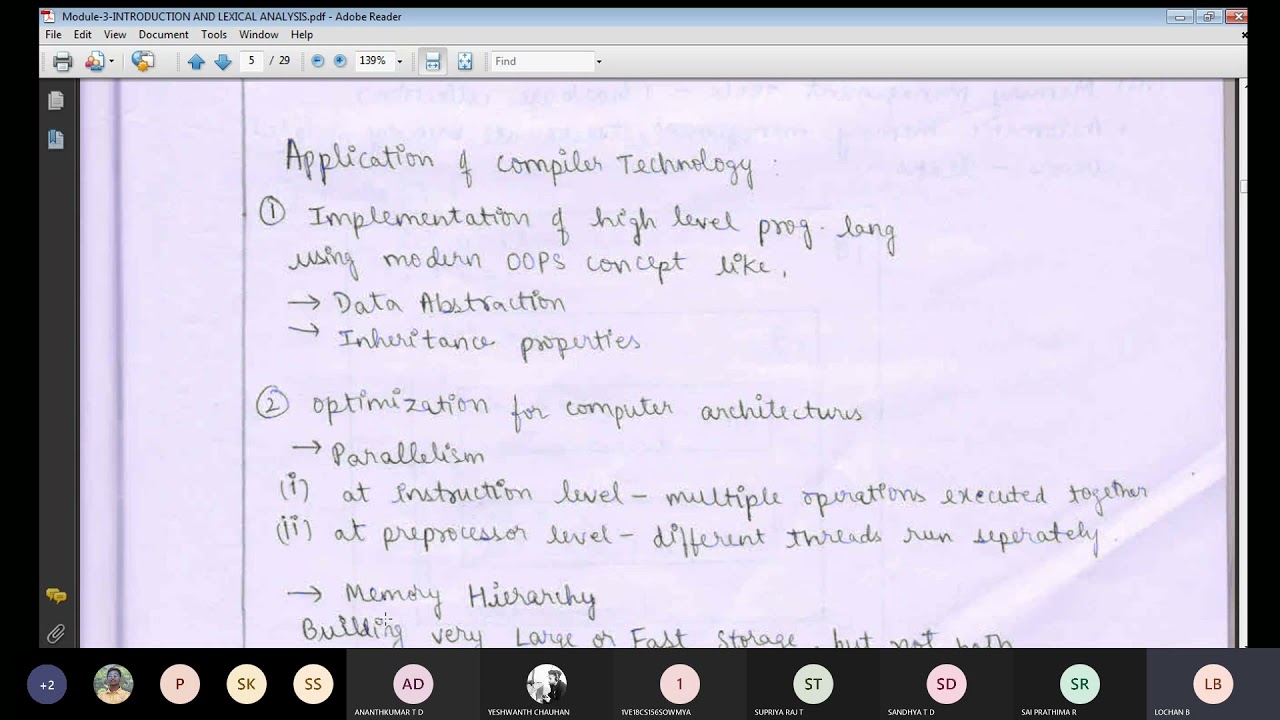 Module-3-INTRODUCTION AND LEXICAL ANALYSIS.pdf - Adobe Reader
File Edit View Document Tools Window Help
5 / 29 139% Find
Application of compiler Technology :
① Implementation of high level prog. lang
using modern OOPS concept like,
→ Data Abstraction
→ Inheritance properties
② optimization for computer architectures
→ Parallelism
(i) at instruction level - multiple operations executed together
(ii) at preprocessor level - different threads run seperately.
→ Memory Hierarchy
Building very Large or Fast storage, but not both
+2 P SK SS AD 1 ST SD SR LB
ANANTHKUMAR T D YESHWANTH CHAUHAN 1VE18CS156SOWMYA SUPRIYA RAJ T SANDHYA T D SAI PRATHIMA R LOCHAN B